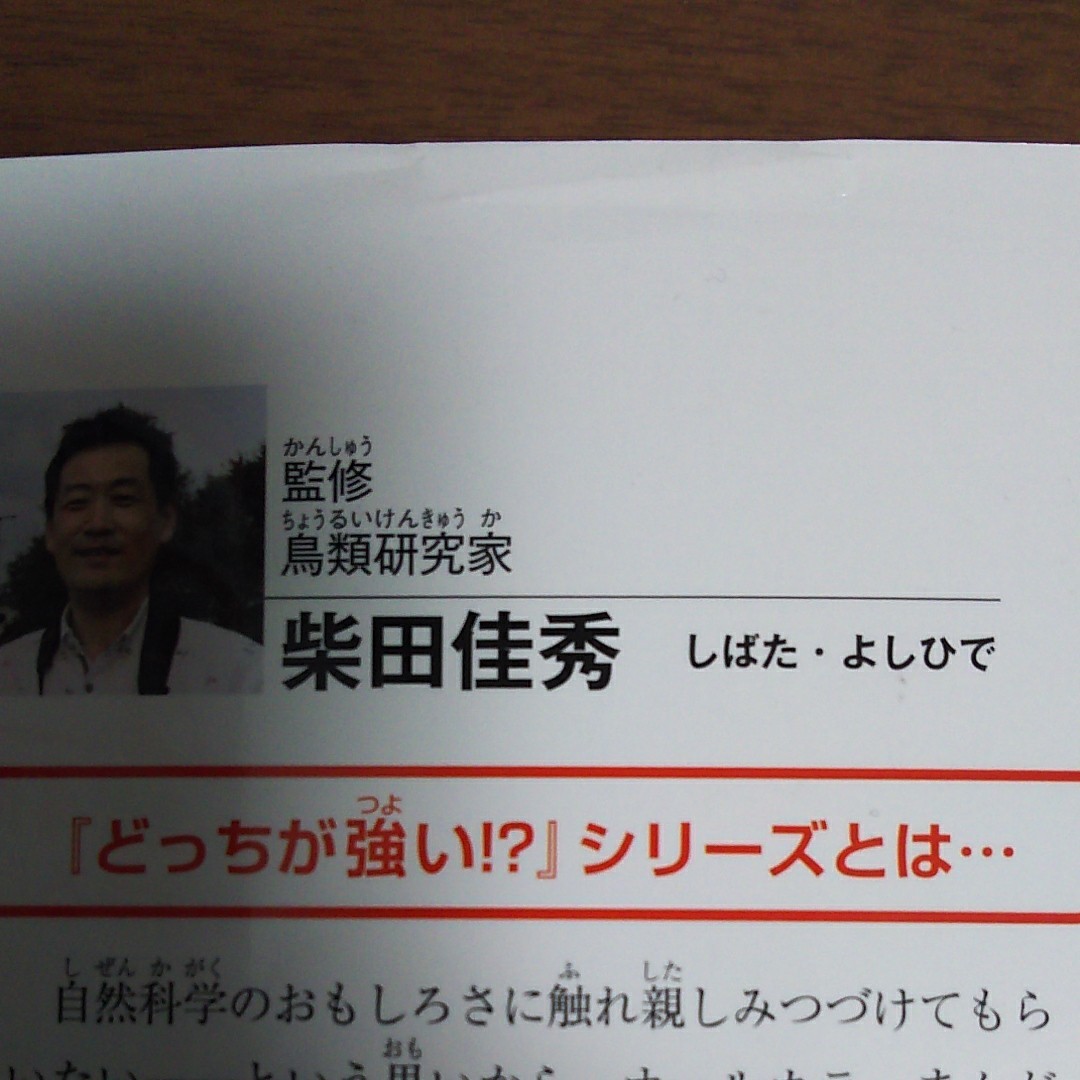 かんしゅう
監修
ちょうるいけんきゅうか
鳥類研究家
柴田佳秀 しばた・よしひで
つよ
『どっちが強い!?』シリーズとは…
しぜんかがく ふ した
自然科学のおもしろさに触れ親しみつづけてもら
おも
いたい という思いから